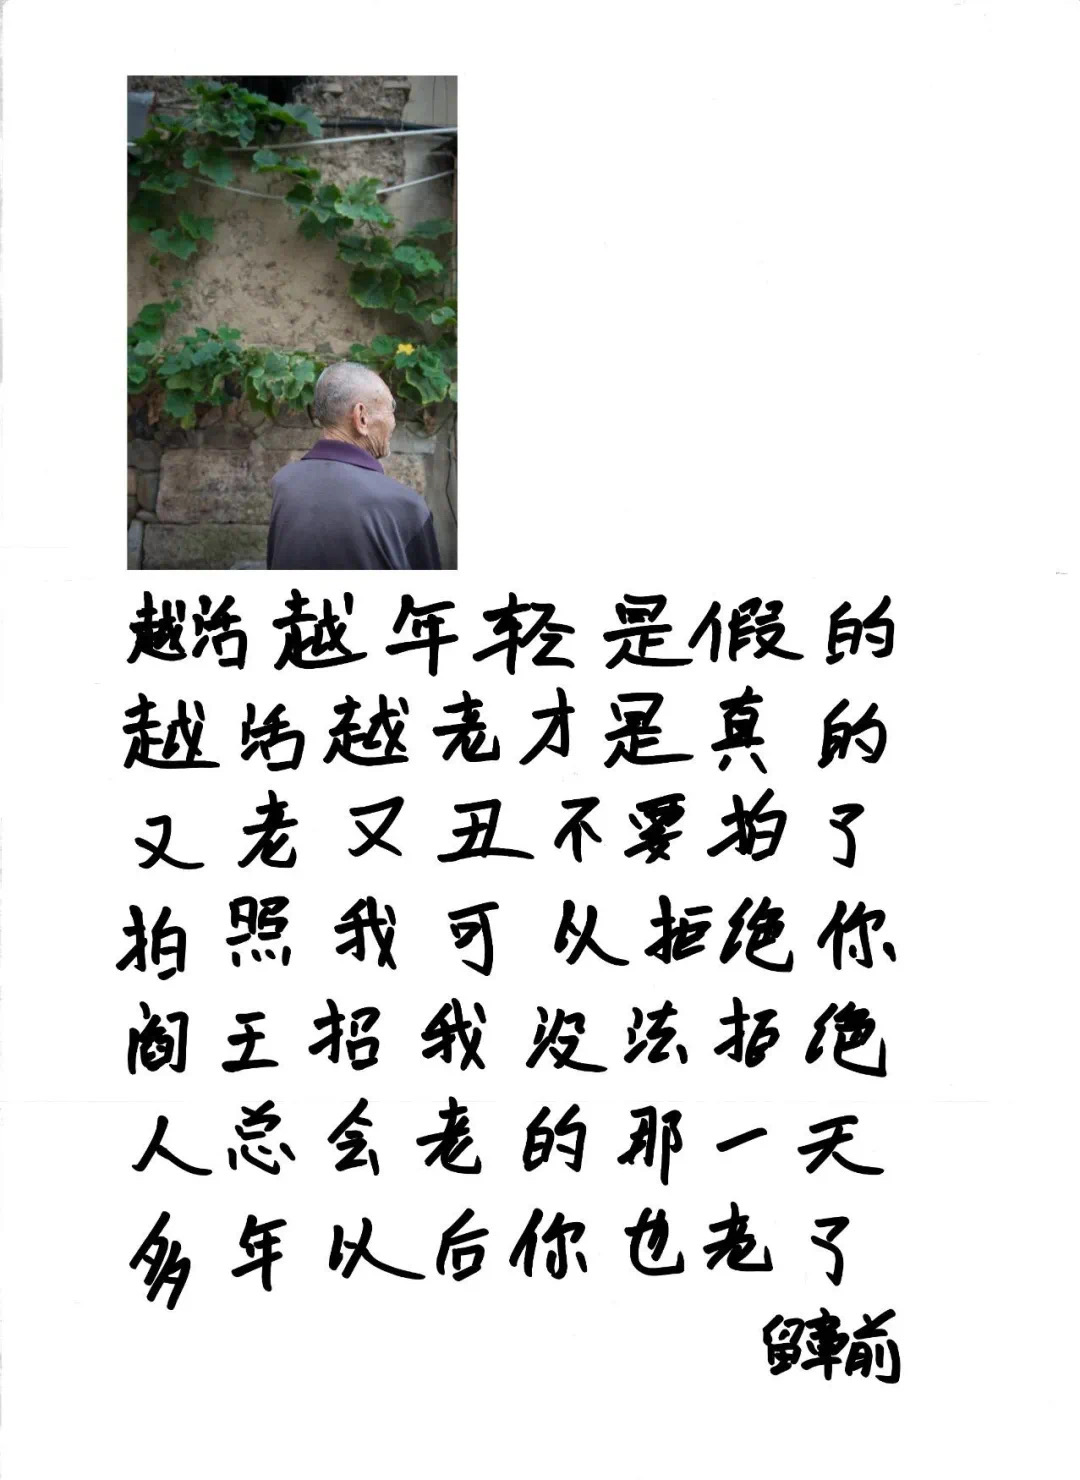 越活越年轻是假的
越活越老才是真的
又老又丑不要拍了
拍照我可以拒绝你
阎王招我没法拒绝
人总会老的那一天
多年以后你也老了
留章前